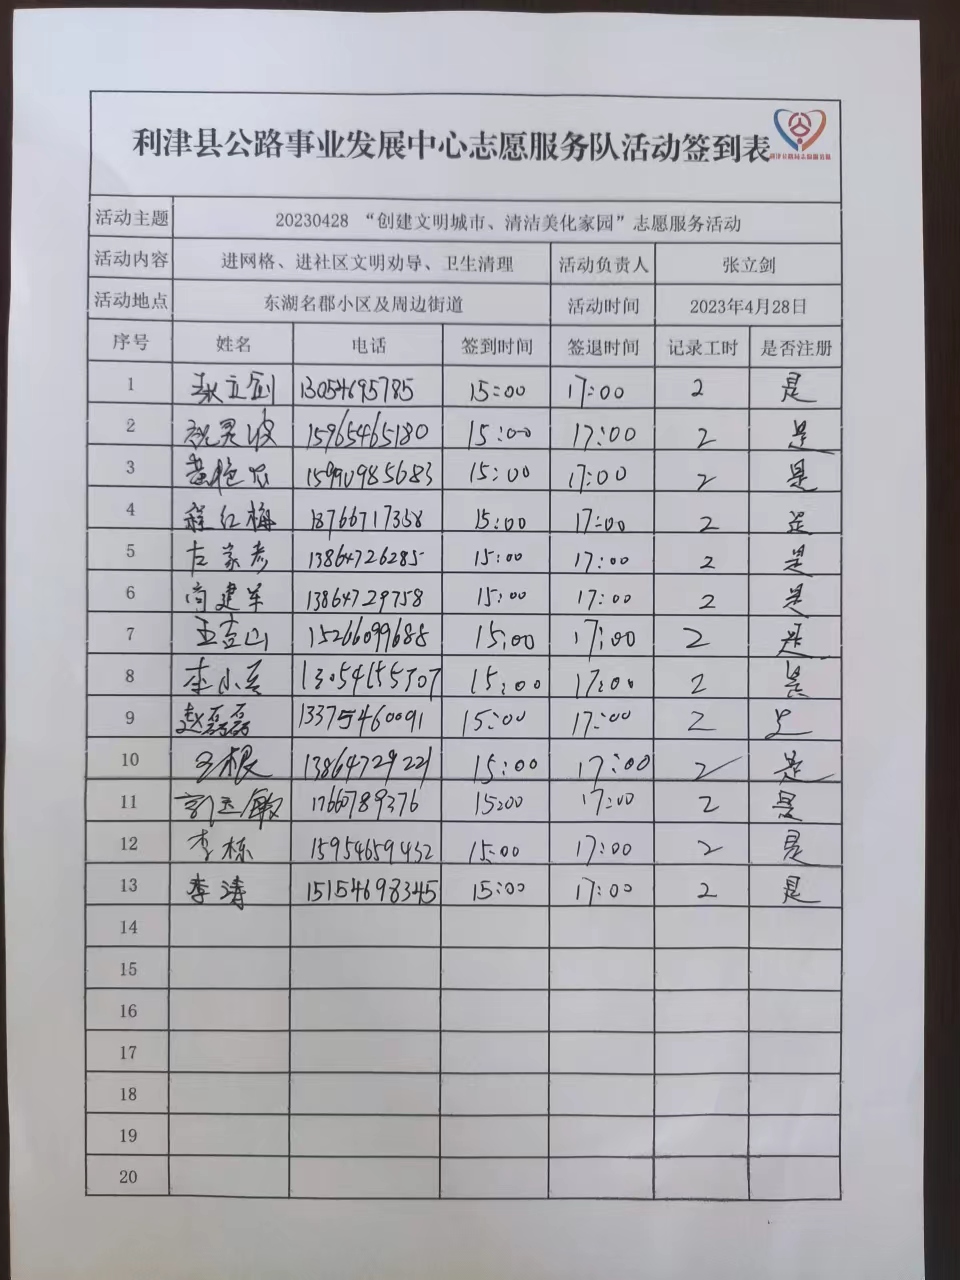 利津县公路事业发展中心志愿服务队活动签到表
活动主题 20230428 “创建文明城市、清洁美化家园”志愿服务活动
活动内容 进网格、进社区文明劝导、卫生清理 活动负责人 张立剑
活动地点 东湖名郡小区及周边街道 活动时间 2023年4月28日
序号 姓名 电话 签到时间 签退时间 记录工时 是否注册
1 张立剑 13054695785 15:00 17:00 2 是
2 15965465180 15:00 17:00 2 是
3 15990985683 15:00 17:00 2 是
4 程红梅 18766717358 15:00 17:00 2 是
5 左家彦 13864726285 15:00 17:00 2 是
6 尚建军 13864729758 15:00 17:00 2 是
7 王吉山 15266099688 15:00 17:00 2 是
8 李小 15:00 17:00 2 是
9 赵磊磊 13375460091 15:00 17:00 2 是
10 王根 13864729221 15:00 17:00 2 是
11 敏 1766789376 15:00 17:00 2 是
12 李栋 15954659432 15:00 17:00 2 是
13 李涛 15154698345 15:00 17:00 2 是
14
15
16
17
18
19
20